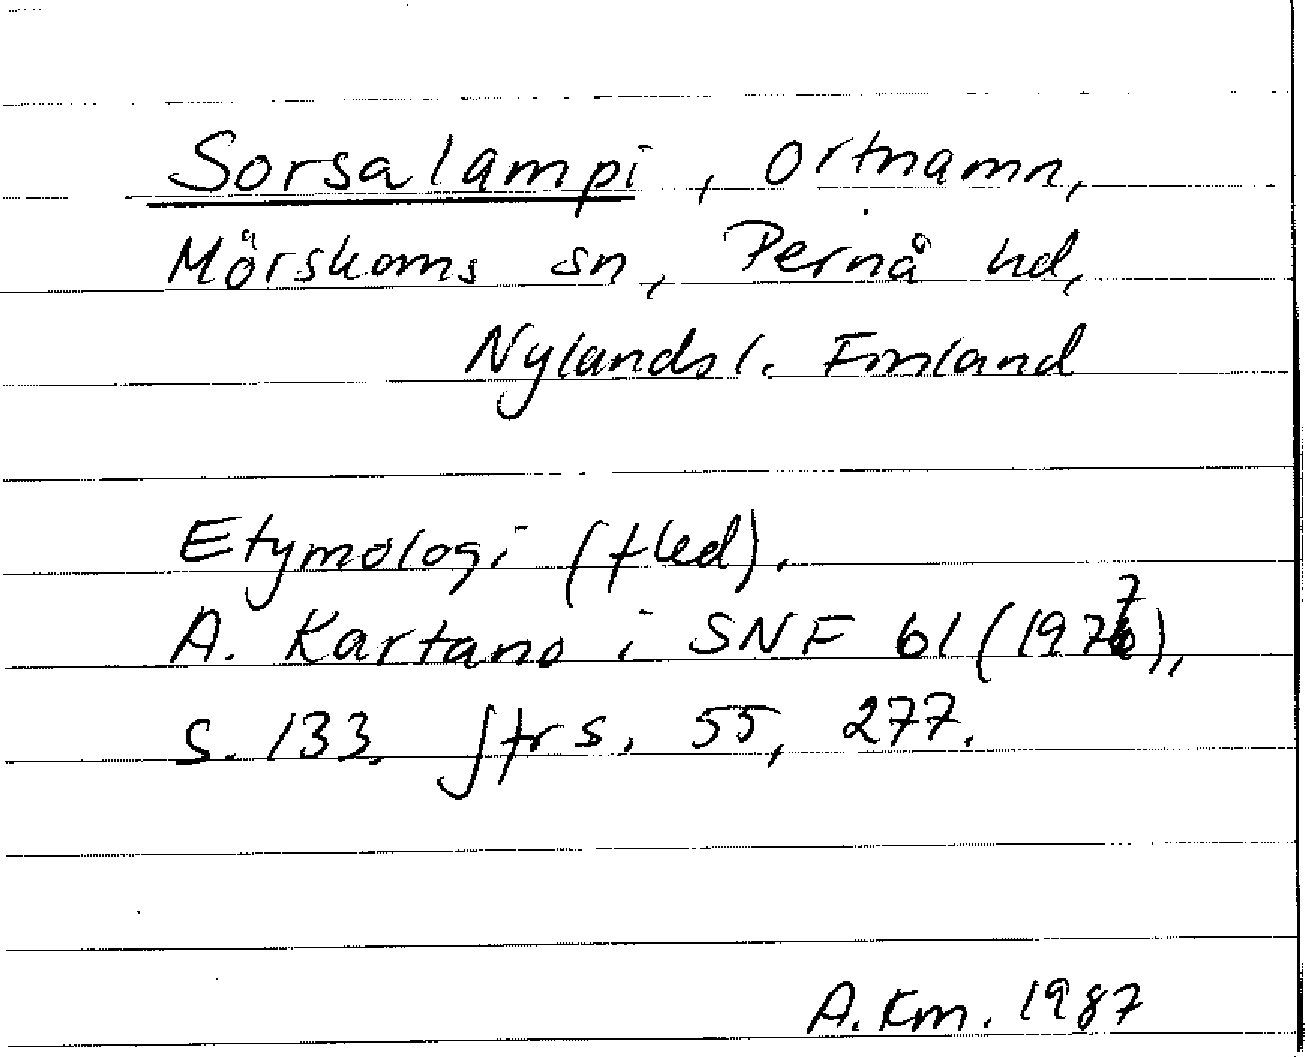 Sorsalampi, ortnamn,
Mörskoms sn, Pernå hd,
Nylands l. Finland
Etymologi (fled).
A. Kartano i SNF 61 (1977),
s. 133. Jfr s. 55, 277.
A. Km. 1987